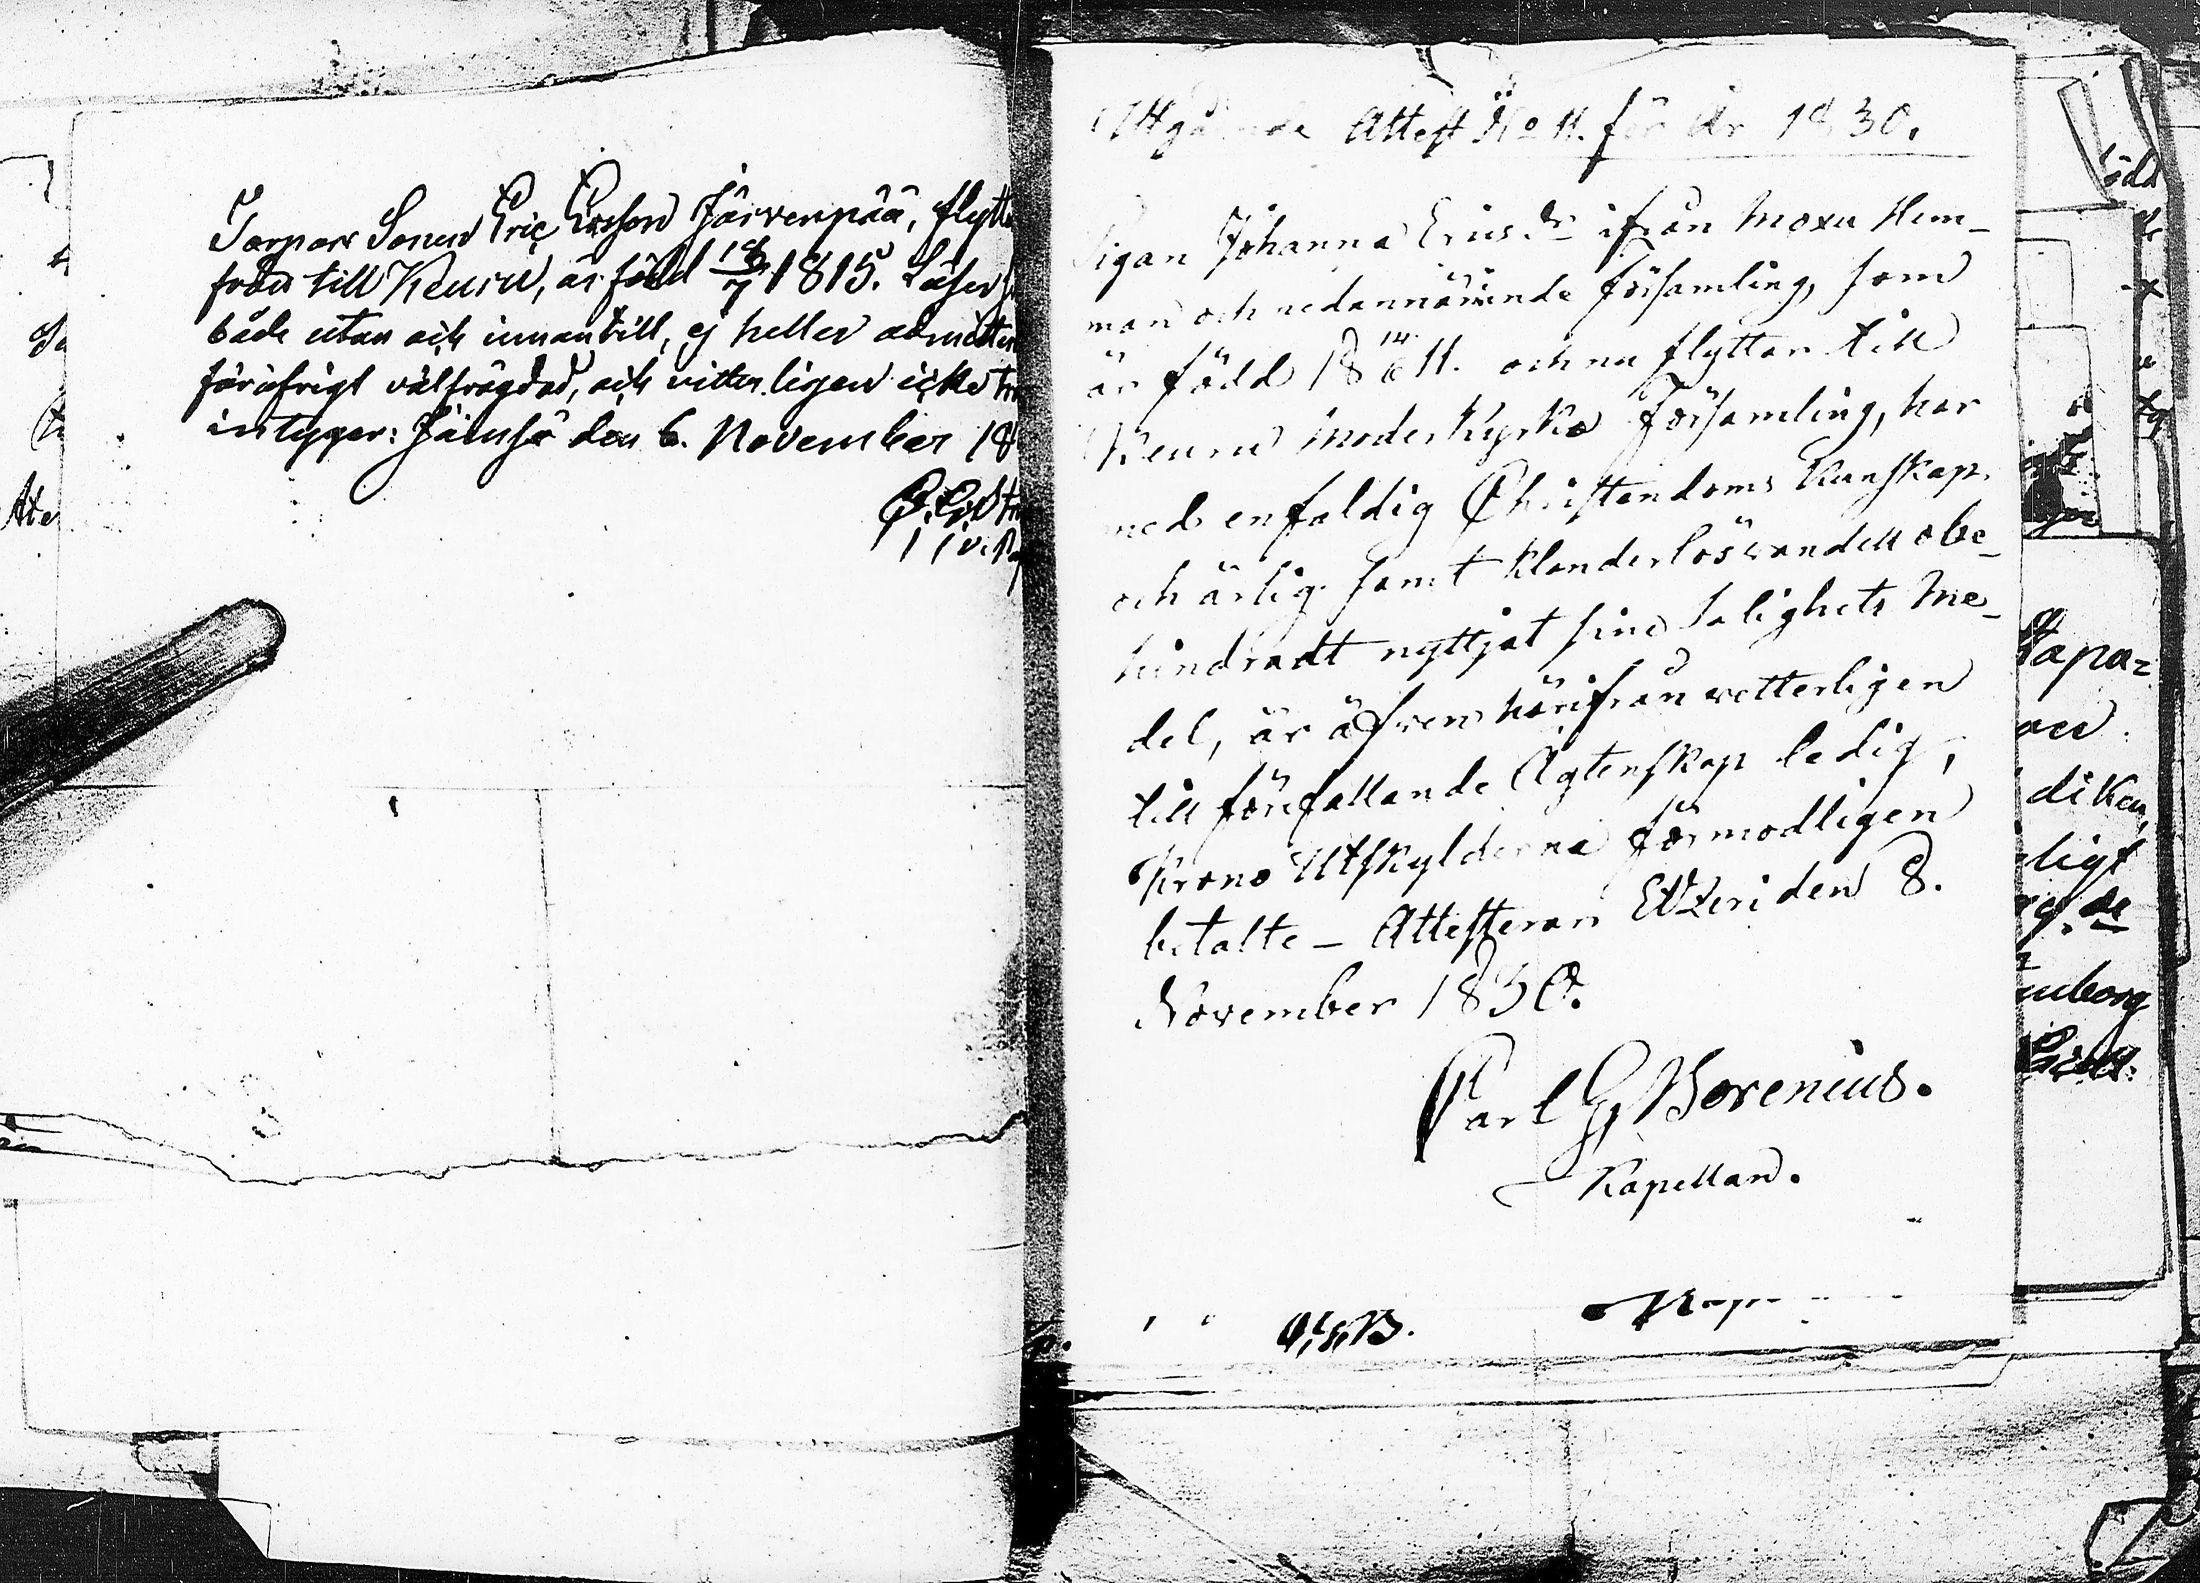 Torpare Sonen Eric Ersson Järvenpää, flytt
från till Keuru, är född 18/7 1815. Läser
både utan och innantill, ej heller admitter
för öfrigt välfrägdad, och vitterligen icke
intygar: Jämsä den 6. November 18
Utgående Attest No 11. för År 1830.
Pigan Johanna Ericsdr ifrån Moxu Hem-
man och nedannämnde Församling, som
är född 18 14/6 11. och nu flyttar till
Keuru Moderkyrko Församling, har
med enfaldig Christendoms Kunskap
och ärlig samt klanderlös vandell obe-
hindradt nyttjat sine Salighets Me-
del, är äfven härifrån vetterligen
till förefallande Ägtenskap ledig,
Krono Utskylderna förmodligen
betalte – Attesterar Etzeri den 8.
November 1830.
Carl G Borenius.
Kapellan.
Kapa=
diken,
ligt